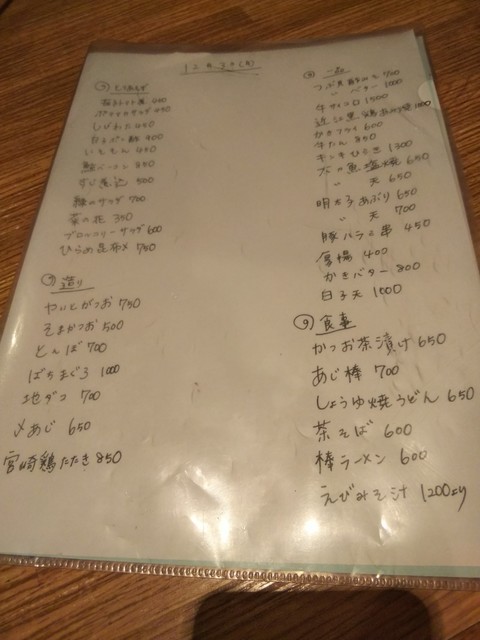 とりあえず
ポテトサラダ 450
しびれたこ 450
いももん 450
鮭ハーコン 850
すじ煮込 500
鶏のサラダ 700
菜の花 350
ブロッコリーサラダ 600
ひらめ昆布〆 750
造り
やいとがつお 750
そまかつお 500
とんぼ 700
ばちまぐろ 1000
地ダコ 700
〆あじ 650
宮崎鶏たたき 850
一品
つぶ貝 700
〃 バター 1000
牛サイコロ 1500
近江黒鶏 1000
かきフライ 600
牛たん 850
キンキひらき 1300
太刀魚塩焼 650
〃 天 650
明太子あぶり 650
〃 天 700
豚バラ二串 450
厚揚 400
かきバター 800
白子天 1000
食事
かつお茶漬け 650
あじ棒 700
しょうゆ焼うどん 650
茶そば 600
棒ラーメン 600
えびみそ汁 1200より